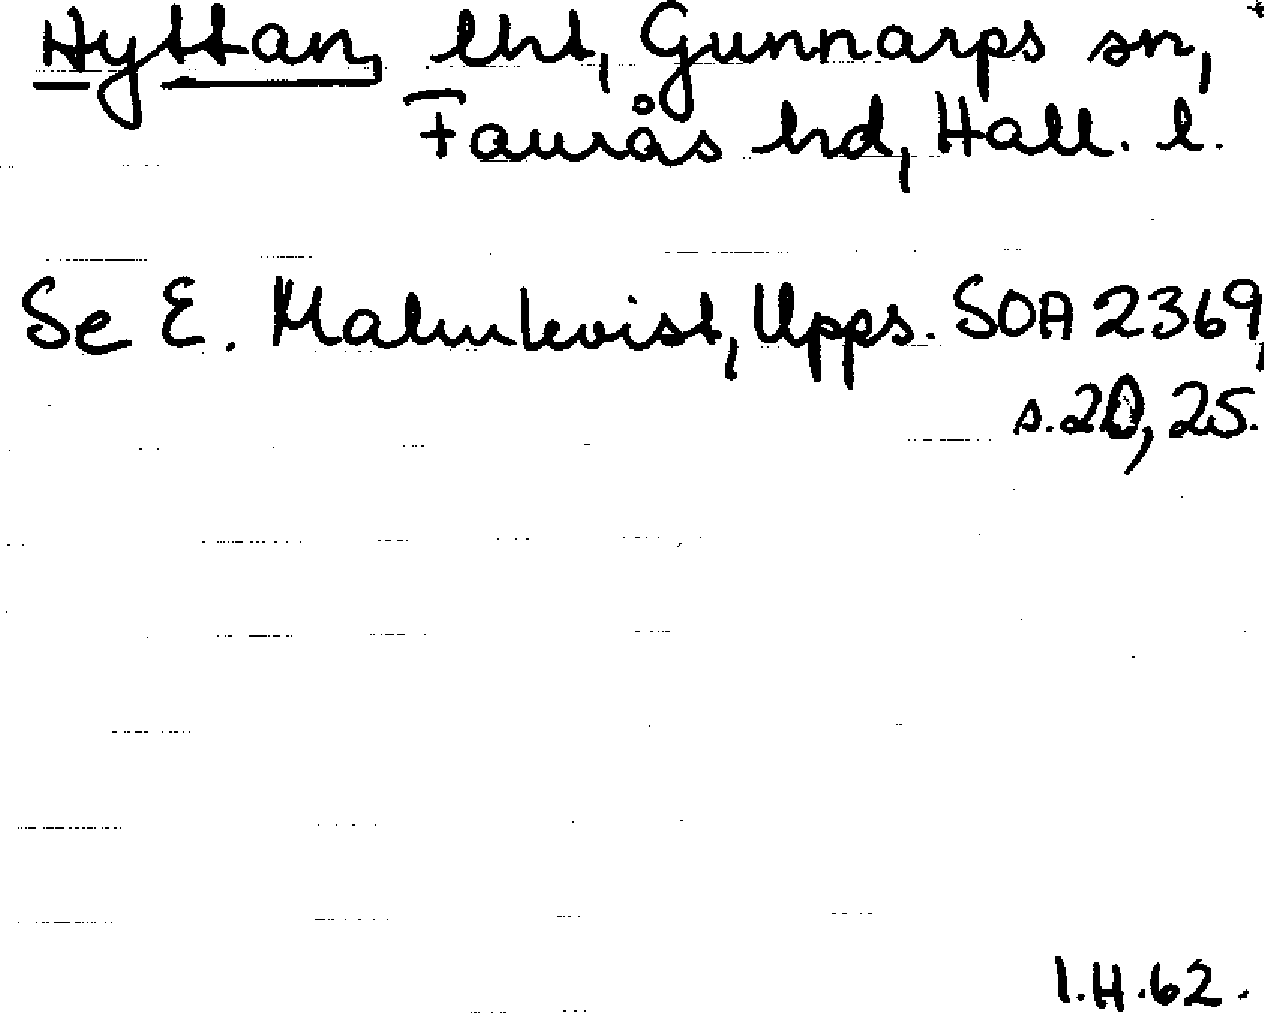 Hyttan, lht, Gunnarps sn,
Faurås hd, Hall. l.
Se E. Malmkvist, Upps. SOA 2369,
s. 20, 25.
I.H.62.